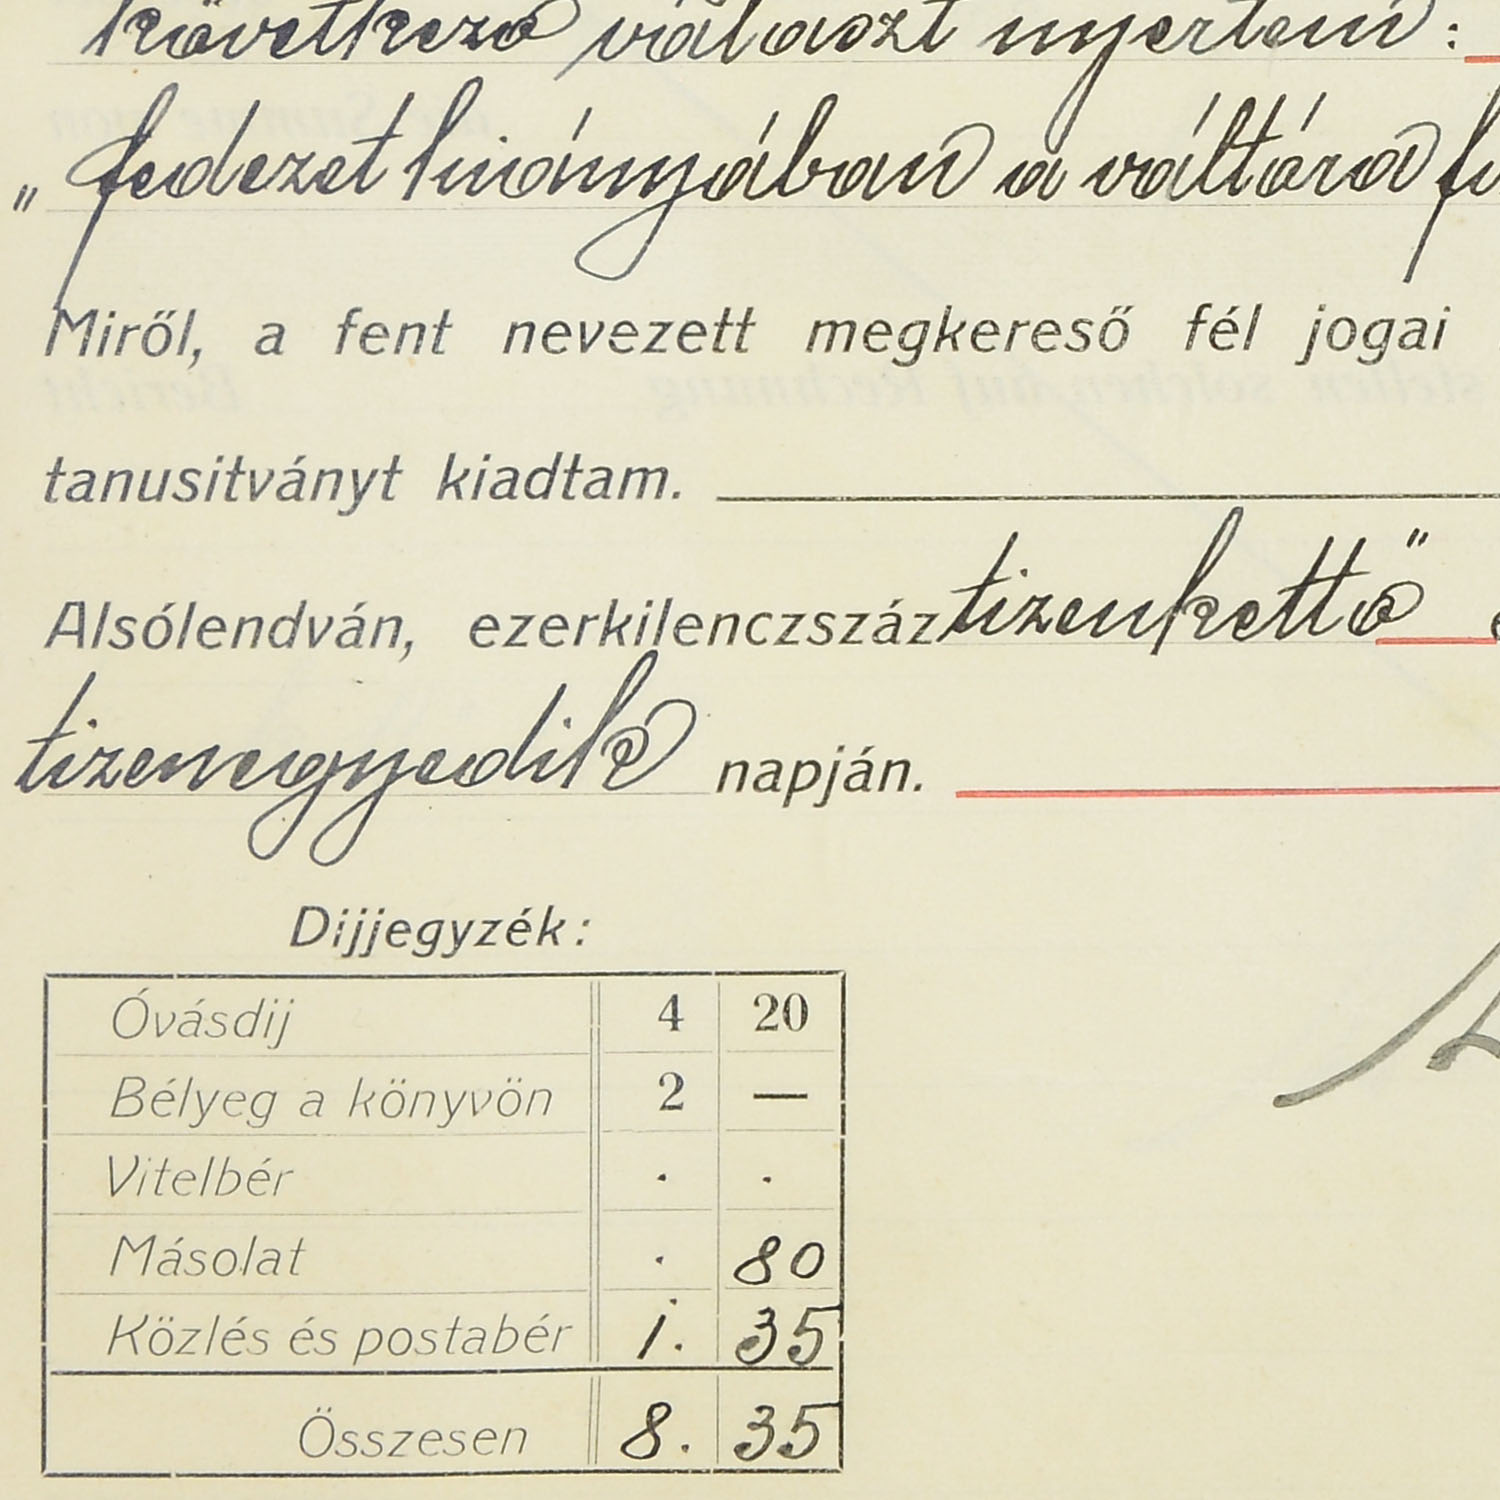 következő választ nyertem:
„fedezet hiányában a váltóra
Miről, a fent nevezett megkereső fél jogai
tanusitványt kiadtam.
Alsólendván, ezerkilenczszáz tizenkettő
tizenegyedik napján.
Dijjegyzék:
Óvásdij 4 20
Bélyeg a könyvön 2 —
Vitelbér . .
Másolat . 80
Közlés és postabér 1. 35
Összesen 8. 35